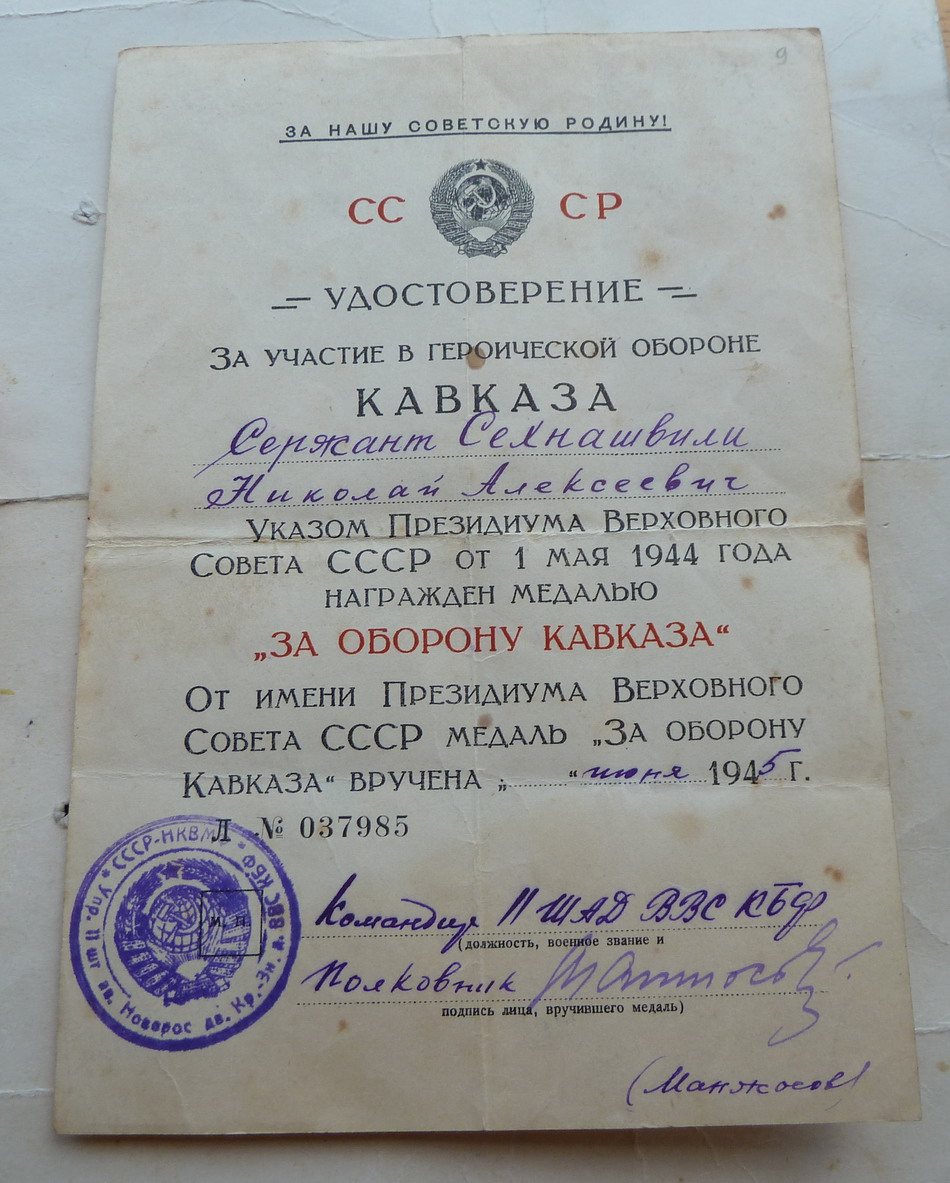 9
ЗА НАШУ СОВЕТСКУЮ РОДИНУ!
СС СР
УДОСТОВЕРЕНИЕ
ЗА УЧАСТИЕ В ГЕРОИЧЕСКОЙ ОБОРОНЕ
КАВКАЗА
Сержант Сехнашвили
Николай Алексеевич
УКАЗОМ ПРЕЗИДИУМА ВЕРХОВНОГО
СОВЕТА СССР ОТ 1 МАЯ 1944 ГОДА
НАГРАЖДЕН МЕДАЛЬЮ
„ЗА ОБОРОНУ КАВКАЗА“
ОТ ИМЕНИ ПРЕЗИДИУМА ВЕРХОВНОГО
СОВЕТА СССР МЕДАЛЬ „ЗА ОБОРОНУ
КАВКАЗА“ ВРУЧЕНА „ “ июня 1945 Г.
Л № 037985
СССР-НКВМФ * Упр. 11 шт ав. Новорос дв. Кр.-Зн. д. ВВС КБФ *
М. П.
Командир 11 ШАД ВВС КБФ
(должность, военное звание и
Полковник
подпись лица, вручившего медаль)
(Манжосов)